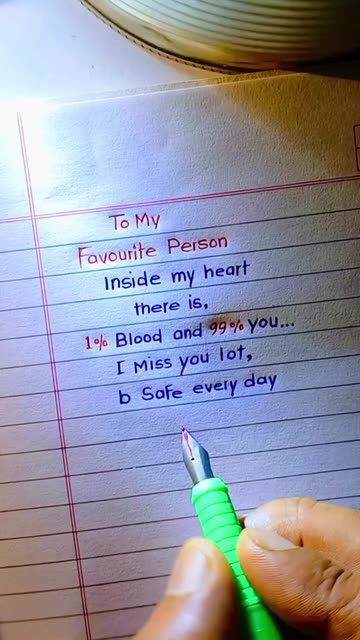 To My
Favourite Person
Inside my heart
there is,
1% Blood and 99% you...
I Miss you lot,
b Safe every day